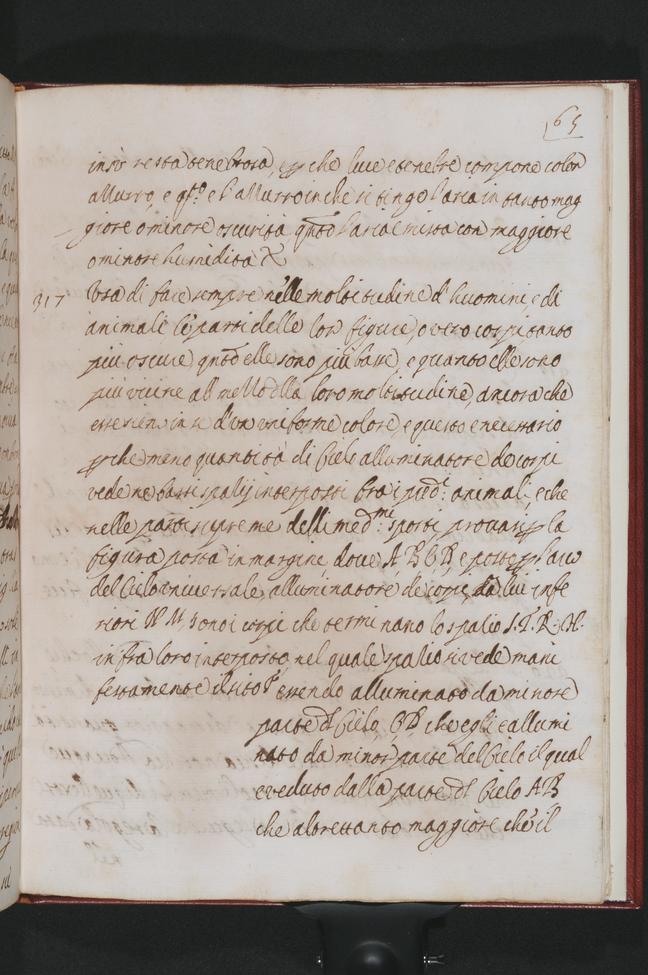 65
in sù resta tenebrosa, e p che luce e tenebre compone color
azzurro, e q.to e l'azzurro in che si tinge l'aria in tanto mag
giore o minore oscurità q.nto l'aria è mista con maggiore
o minore humidità &
317 Usa di fare sempre nelle moltitudine d'huomini e di
animali le parti delle lor figure, o vero corpi tanto
più oscure q.nto elle sono più basse, e quanto elle sono
più vicine al mezzo della loro moltitudine, ancora che
esse sieno in se d'un uniforme colore, e questo e necessario
p che meno quantità di Cielo alluminatore de corpi
vede ne bassi spatij interposti tra i pred.i animali, che
nelle parti supreme delli med.mi sporti provasi p la
figura posta in margine dove A B C D, e posto p l'arco
del Cielo universale, alluminatore de corpi, da lui infe
riori N M, sono i corpi che terminano lo spatio S.T.R.H.
infra loro interposto, nel quale spatio si vede mani
festamente il sito F essendo alluminato da minore
parte d'l Cielo CD che egli e allumi
nato da minor parte del Cielo il qual
e veduto dalla parte d'l Cielo AB
che altrettanto maggiore che il